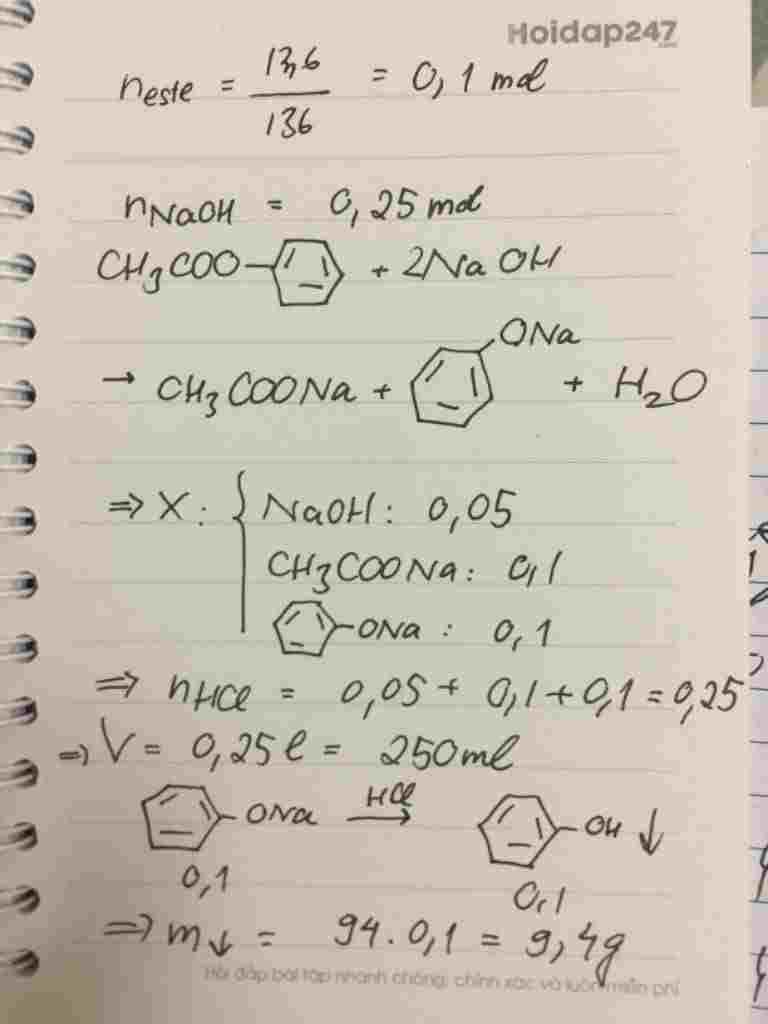 Hoidap247
.com
n este = 13,6 / 136 = 0,1 mol
n NaOH = 0,25 mol
CH3COO- + 2NaOH
→ CH3COONa + ONa + H2O
⇒ X: { NaOH: 0,05
CH3COONa: 0,1
-ONa: 0,1
⇒ nHCl = 0,05 + 0,1 + 0,1 = 0,25
⇒ V = 0,25 l = 250ml
-ONa HCl → -OH ↓
0,1 0,1
⇒ m↓ = 94. 0,1 = 9,4g
Hỏi đáp bài tập nhanh chóng, chính xác và luôn miễn phí